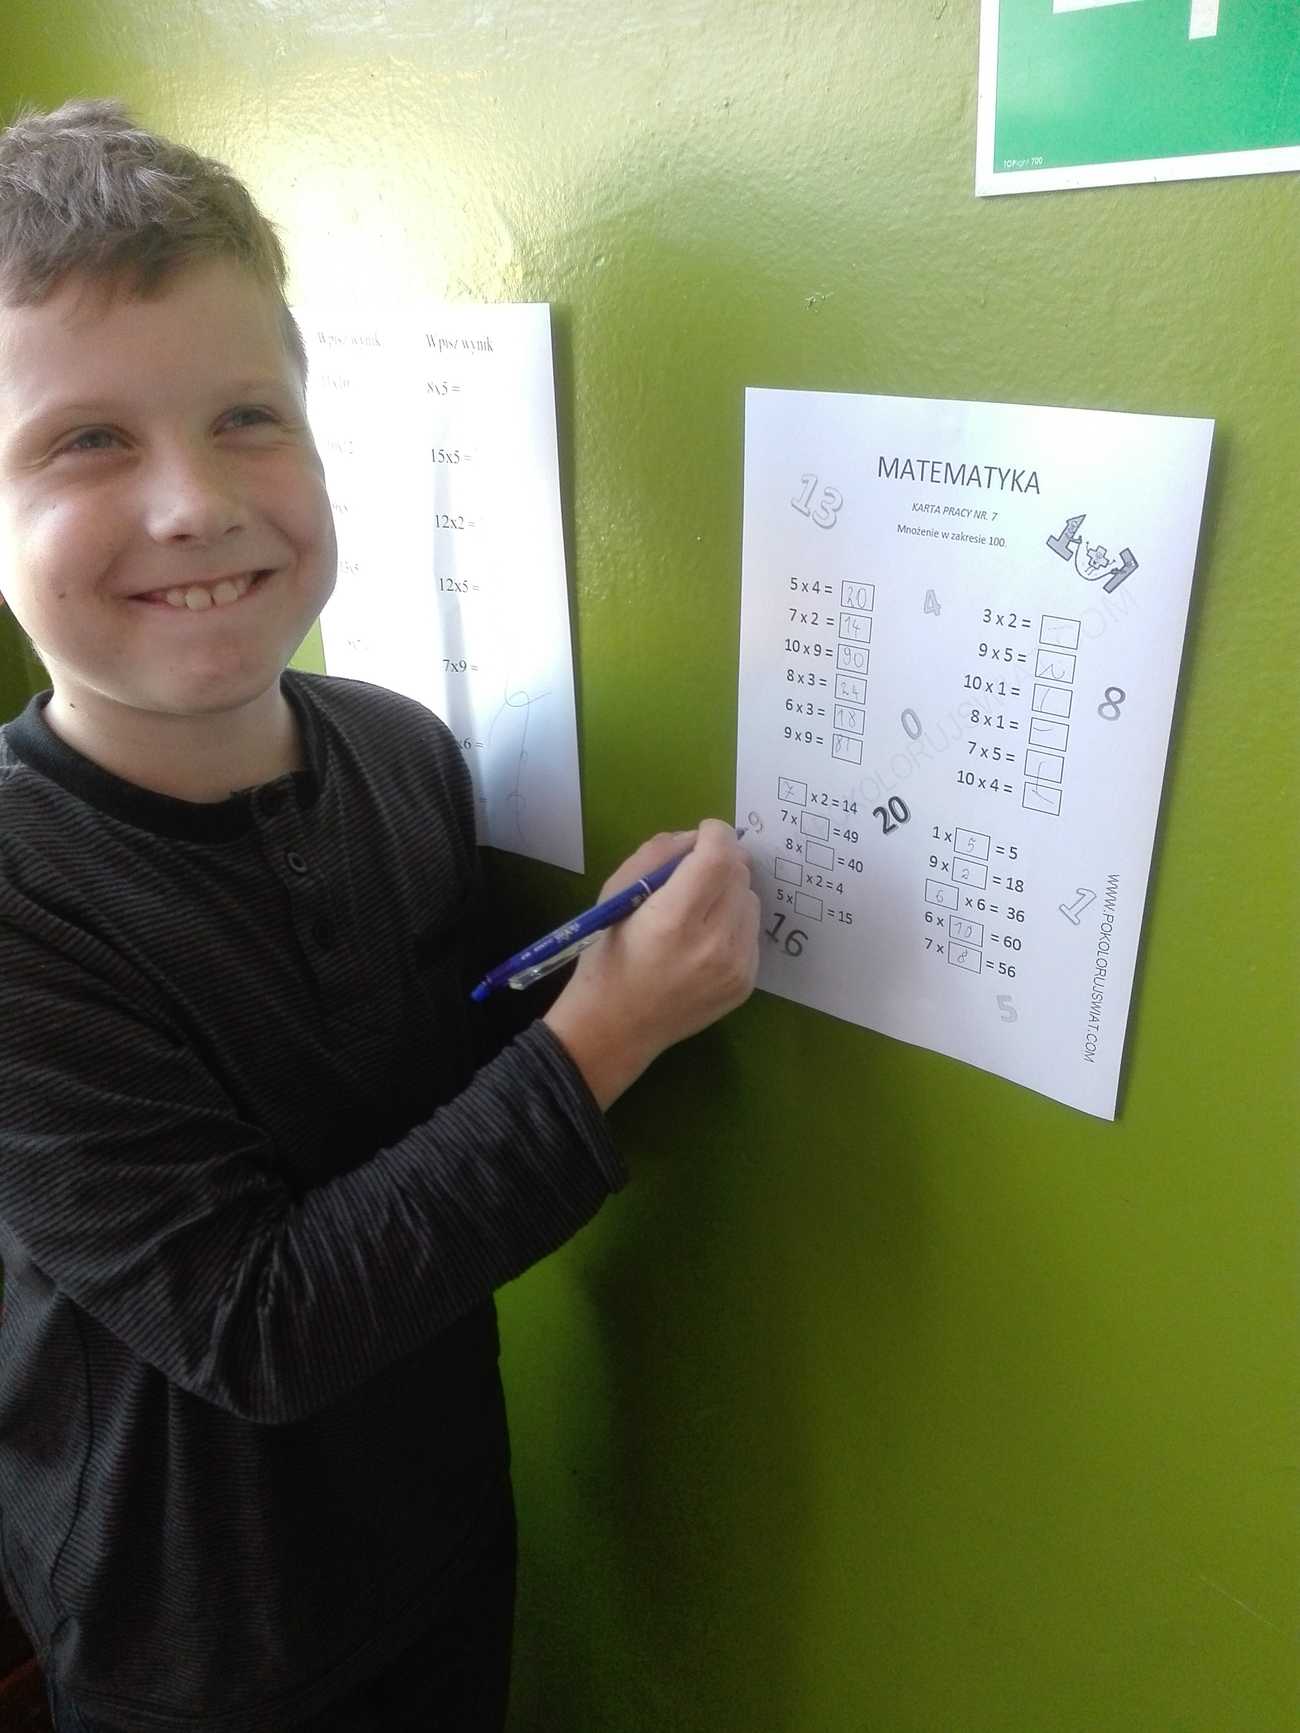 TOPlight 700
Wpisz wynik
Wpisz wynik
8x5 =
15x5 =
12x2 =
12x5 =
7x9 =
x6 =
=
MATEMATYKA
KARTA PRACY NR. 7
Mnożenie w zakresie 100.
13
4
8
0
20
9
16
1
5
5 x 4 = 20
7 x 2 = 14
10 x 9 = 90
8 x 3 = 24
6 x 3 = 18
9 x 9 = 81
3 x 2 =
9 x 5 =
10 x 1 =
8 x 1 =
7 x 5 =
10 x 4 =
7 x 2 = 14
7 x = 49
8 x = 40
x 2 = 4
5 x = 15
1 x 5 = 5
9 x 2 = 18
6 x 6 = 36
6 x 10 = 60
7 x 8 = 56
WWW.POKOLORUJSWIAT.COM